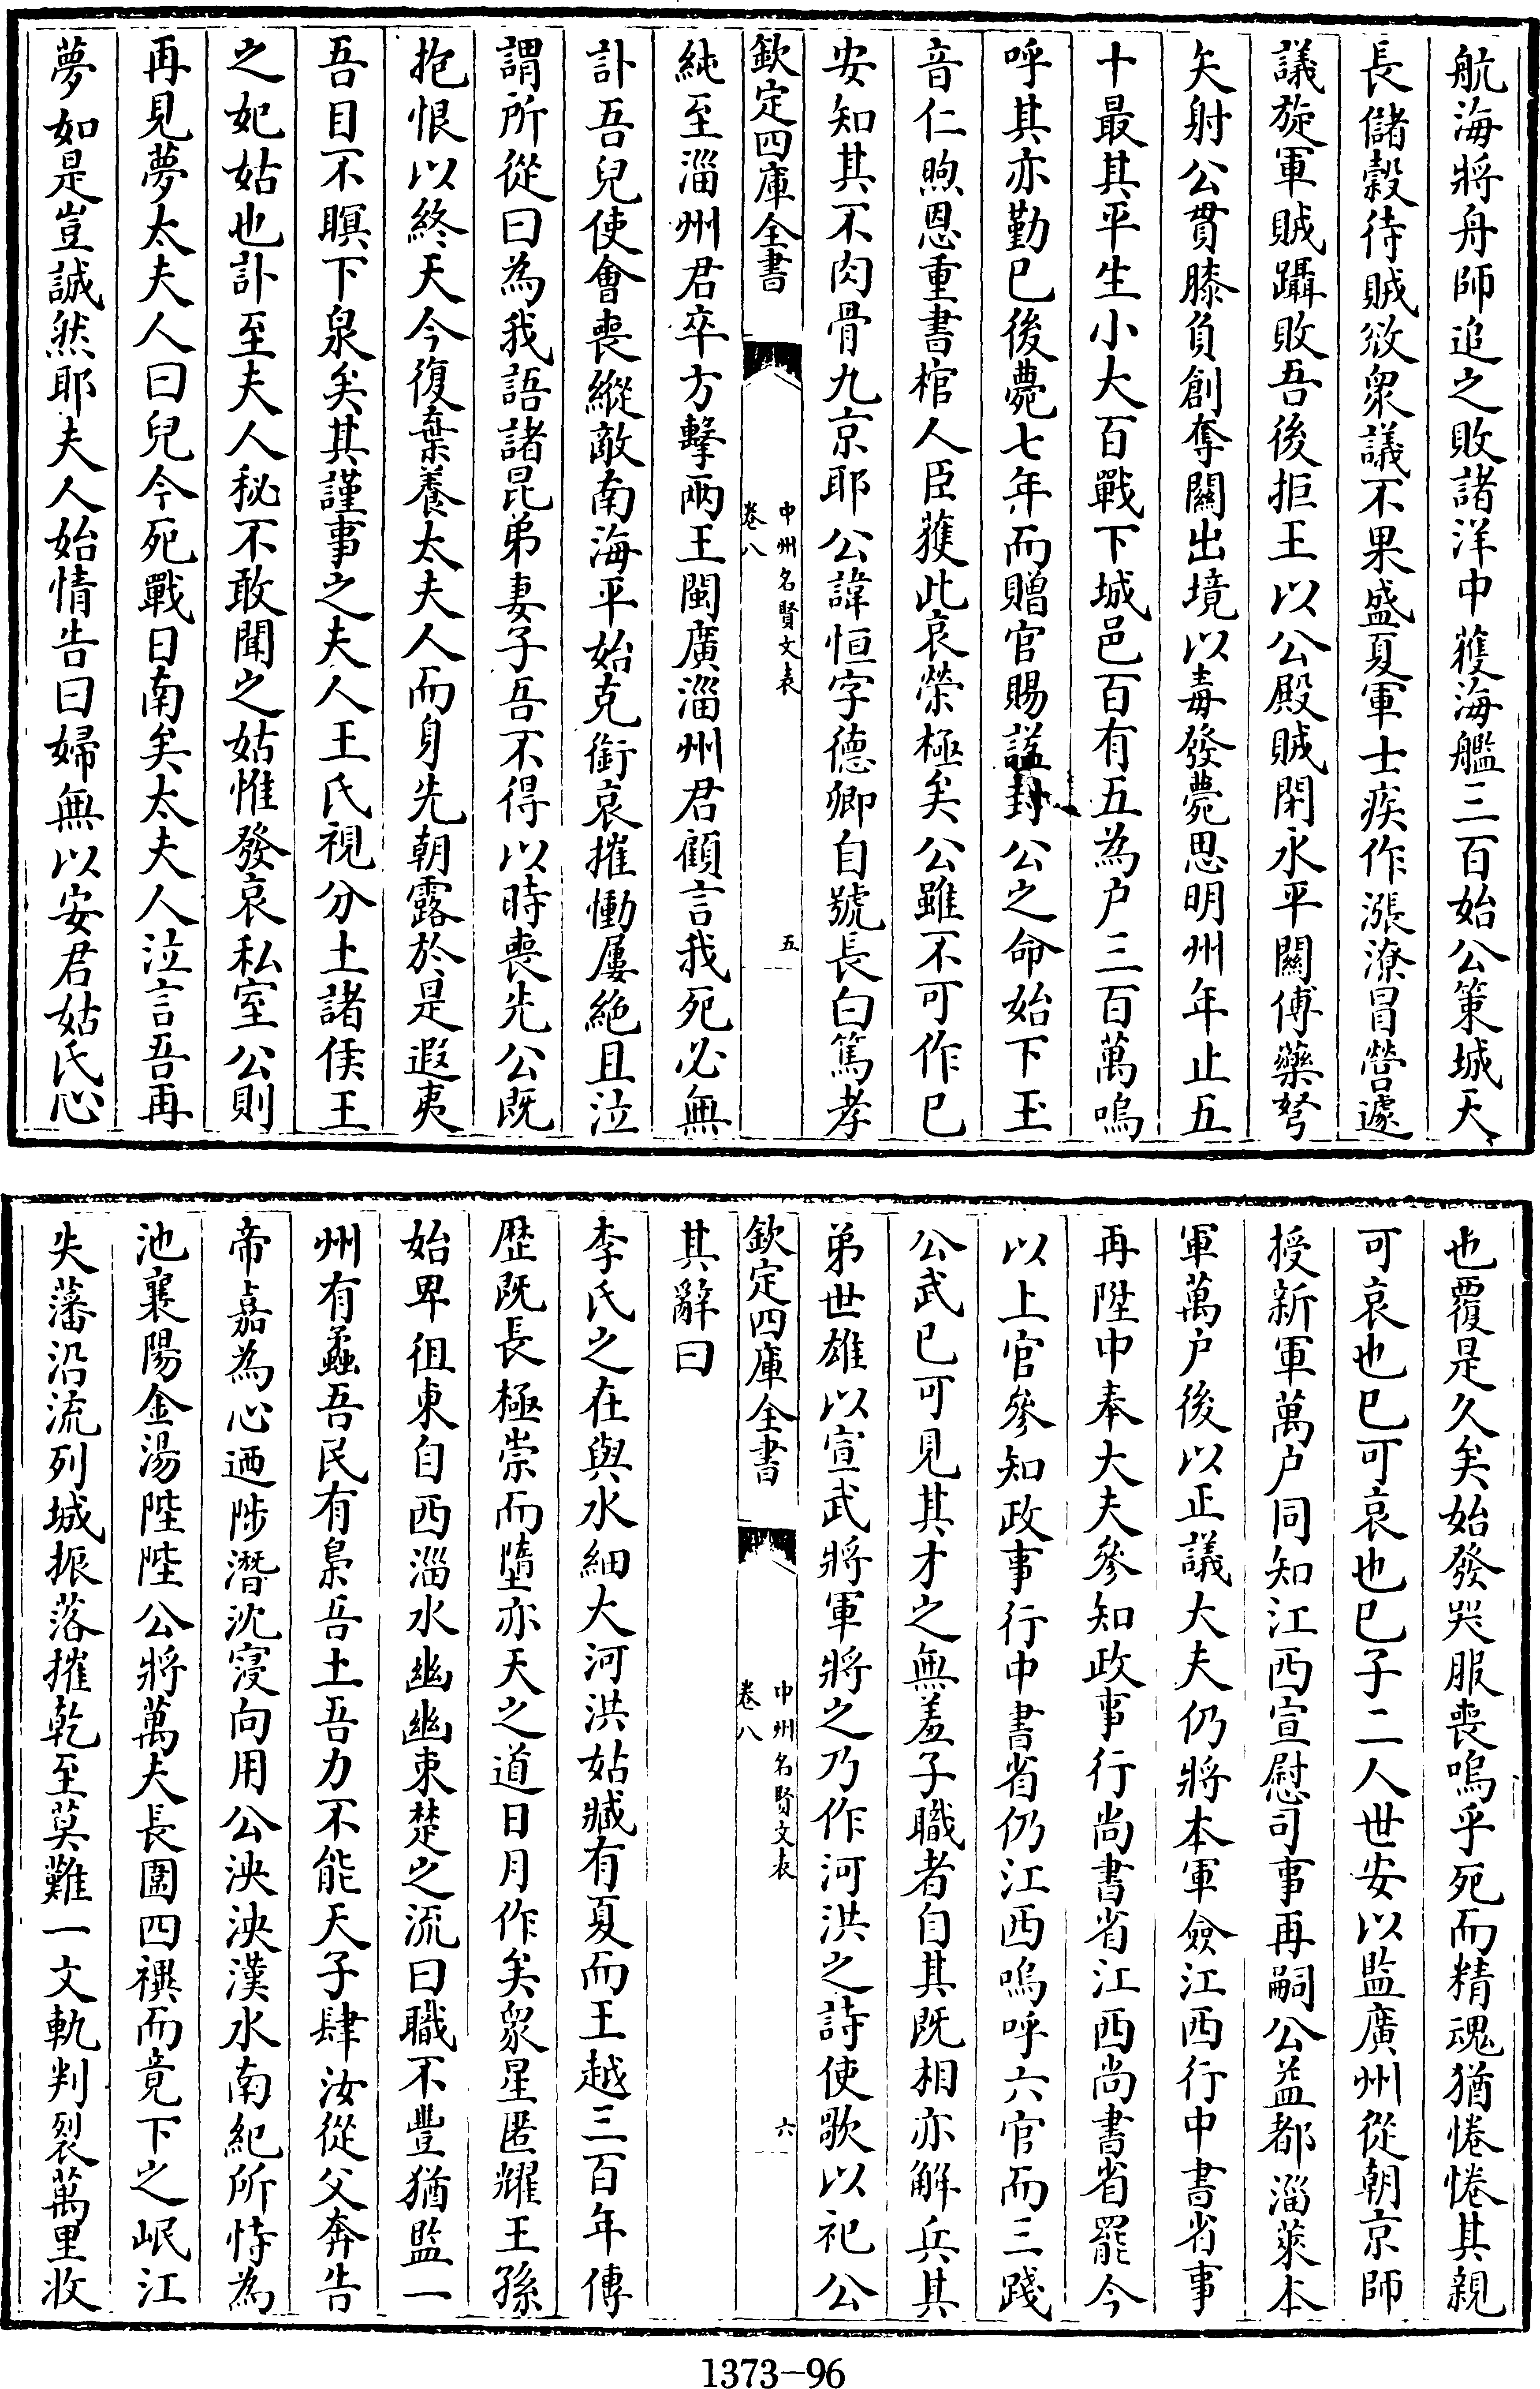 航海將舟師追之敗諸洋中獲海艦三百始公策城天
長儲穀待賊欲衆議不果盛夏軍士疾作漲潦冒營遽
議旋軍賊躡敗吾後拒王以公殿賊閉永平關傅藥弩
矢射公貫膝負創奪關出境以毒發薨思明州年止五
十最其平生小大百戰下城邑百有五為户三百萬嗚
呼其亦勤已後薨七年而贈官賜諡封公之命始下玉
音仁煦恩重書棺人臣獲此哀榮極矣公雖不可作已
安知其不肉骨九京耶公諱恒字德卿自號長白篤孝
欽定四庫全書
中州名賢文表
卷八
五
純至淄州君卒方擊兩王閩廣淄州君顧言我死必無
訃吾兒使會喪縱敵南海平始克銜哀摧慟屢絶且泣
謂所從曰為我語諸昆弟妻子吾不得以時喪先公既
抱恨以終天今復棄養太夫人而身先朝露於是遐夷
吾目不瞑下泉矣其謹事之夫人王氏視分土諸侯王
之妃姑也訃至夫人秘不敢聞之姑惟發哀私室公則
再見夢太夫人曰兒今死戰日南矣太夫人泣言吾再
夢如是豈誠然耶夫人始情告曰婦無以安君姑氏心
也覆是久矣始發哭服喪嗚乎死而精魂猶惓惓其親
可哀也已可哀也已子二人世安以監廣州從朝京師
授新軍萬户同知江西宣慰司事再嗣公益都淄萊本
軍萬户後以正議大夫仍將本軍僉江西行中書省事
再陞中奉大夫參知政事行尚書省江西尚書省罷今
以上官參知政事行中書省仍江西嗚呼六官而三踐
公武已可見其才之無羞子職者自其既相亦解兵其
弟世雄以宣武將軍將之乃作河洪之詩使歌以祀公
欽定四庫全書
中州名賢文表
卷八
六
其辭曰
李氏之在與水細大河洪姑臧有夏而王越三百年傳
歴既長極崇而墮亦天之道日月作矣衆星匿耀王孫
始卑徂東自西淄水幽幽東楚之流曰職不豐猶監一
州有蟊吾民有梟吾土吾力不能天子肆汝從父奔告
帝嘉為心迺陟潛沈寖向用公泱泱漢水南紀所恃為
池襄陽金湯陛陛公將萬夫長圍四禩而竟下之岷江
失藩沿流列城振落摧乾至莫難一文軌判裂萬里收
1373-96